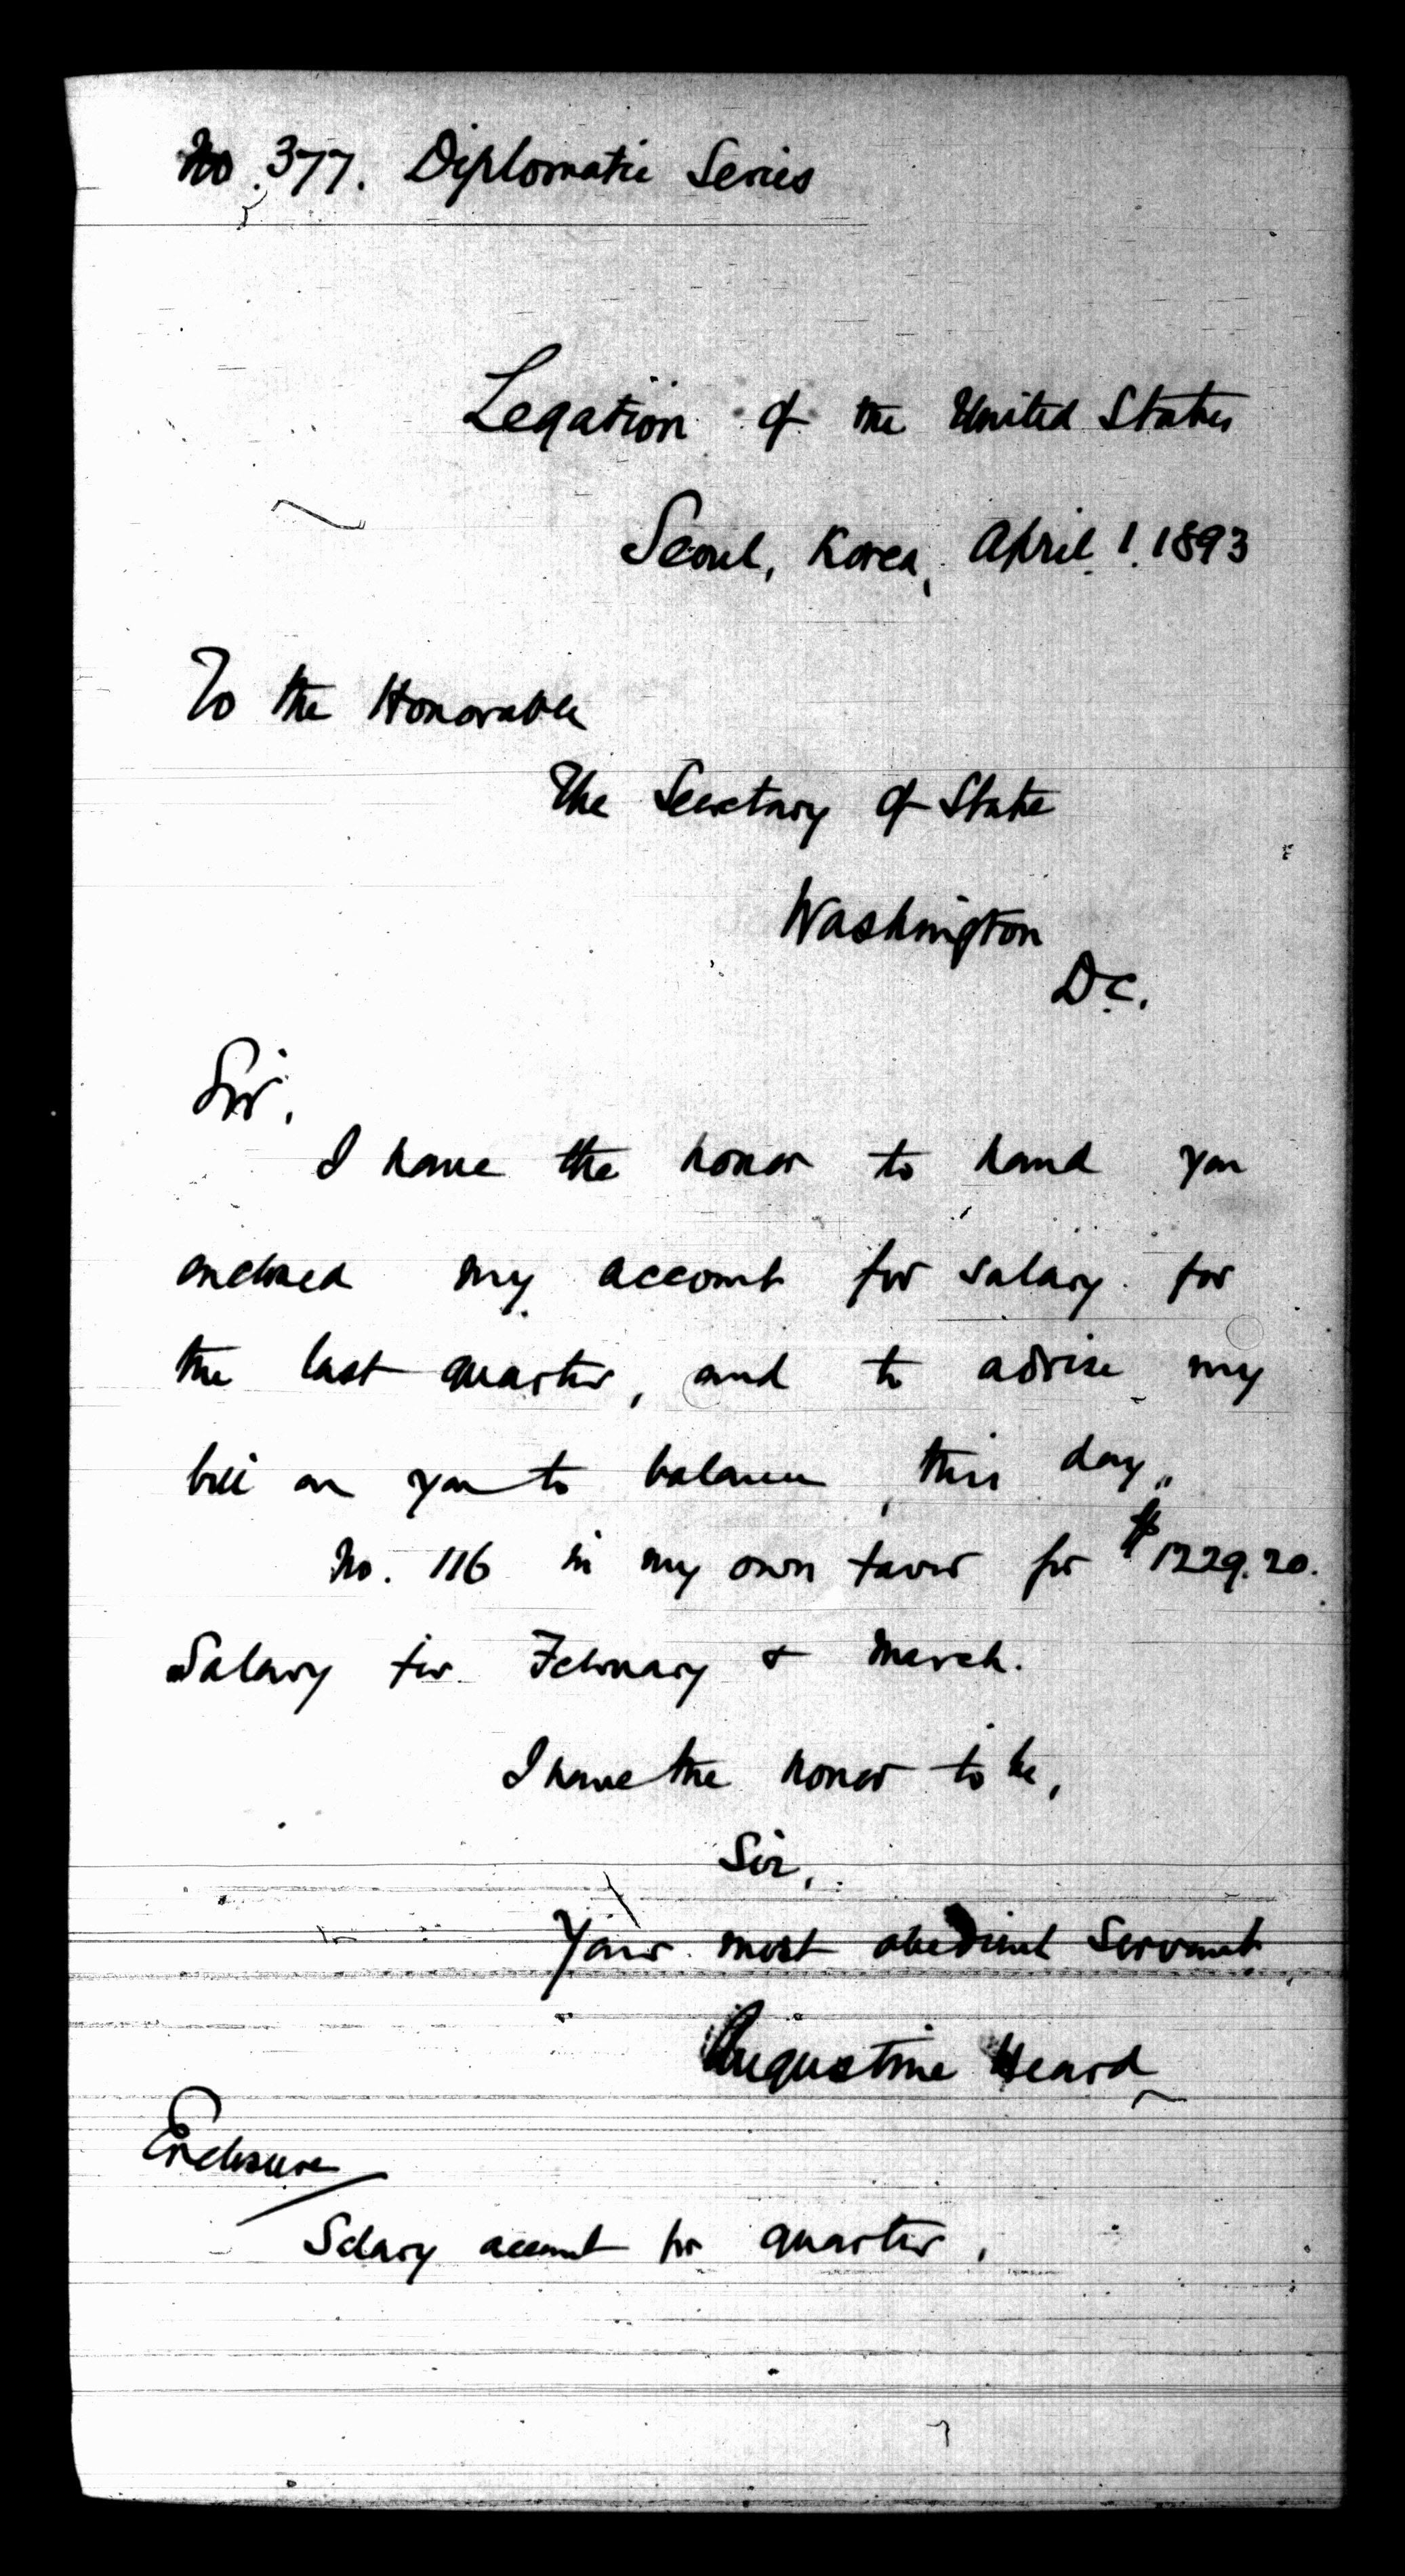 No. 377. Diplomatic Series
Legation of the United States
Seoul, Korea, April 1. 1893
To the Honorable
The Secretary of State
Washington
D.C.
Sir,
I have the honor to hand you
enclosed my account for salary for
the last quarter, and to advise my
bill on you to balance, this day,
No. 116 in my own favor for $1229.20.
Salary for February & March.
I have the honor to be,
Sir,
Your most obedient Servant
Augustine Heard
Enclosure
Salary account for quarter.